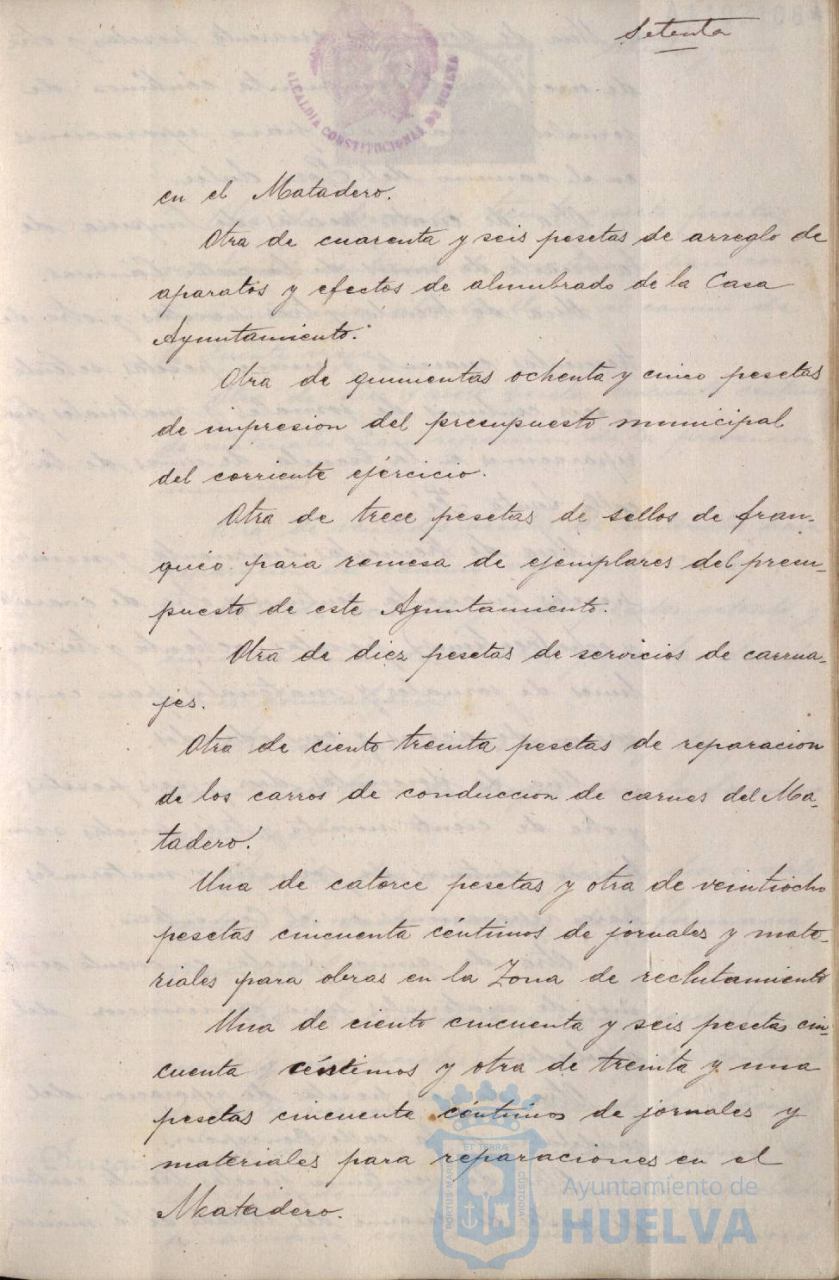 Setenta
ALCALDIA CONSTITUCIONAL DE HUELVA
en el Matadero.
Otra de cuarenta y seis pesetas de arreglo de
aparatos y efectos de alumbrado de la Casa
Ayuntamiento.
Otra de quinientas ochenta y cinco pesetas
de impresion del presupuesto municipal
del corriente ejercicio.
Otra de trece pesetas de sellos de fran-
queo para remesa de ejemplares del presu-
puesto de este Ayuntamiento.
Otra de diez pesetas de servicios de carrua-
jes.
Otra de ciento treinta pesetas de reparacion
de los carros de conduccion de carnes del Ma-
tadero.
Una de catorce pesetas y otra de veintiocho
pesetas cincuenta céntimos de jornales y mate-
riales para obras en la Zona de reclutamiento
Una de ciento cincuenta y seis pesetas cin-
cuenta céntimos y otra de treinta y una
pesetas cincuenta céntimos de jornales y
materiales para reparaciones en el
Matadero.
PORTUS MARIS ET TERRAE CUSTODIA
Ayuntamiento de
HUELVA